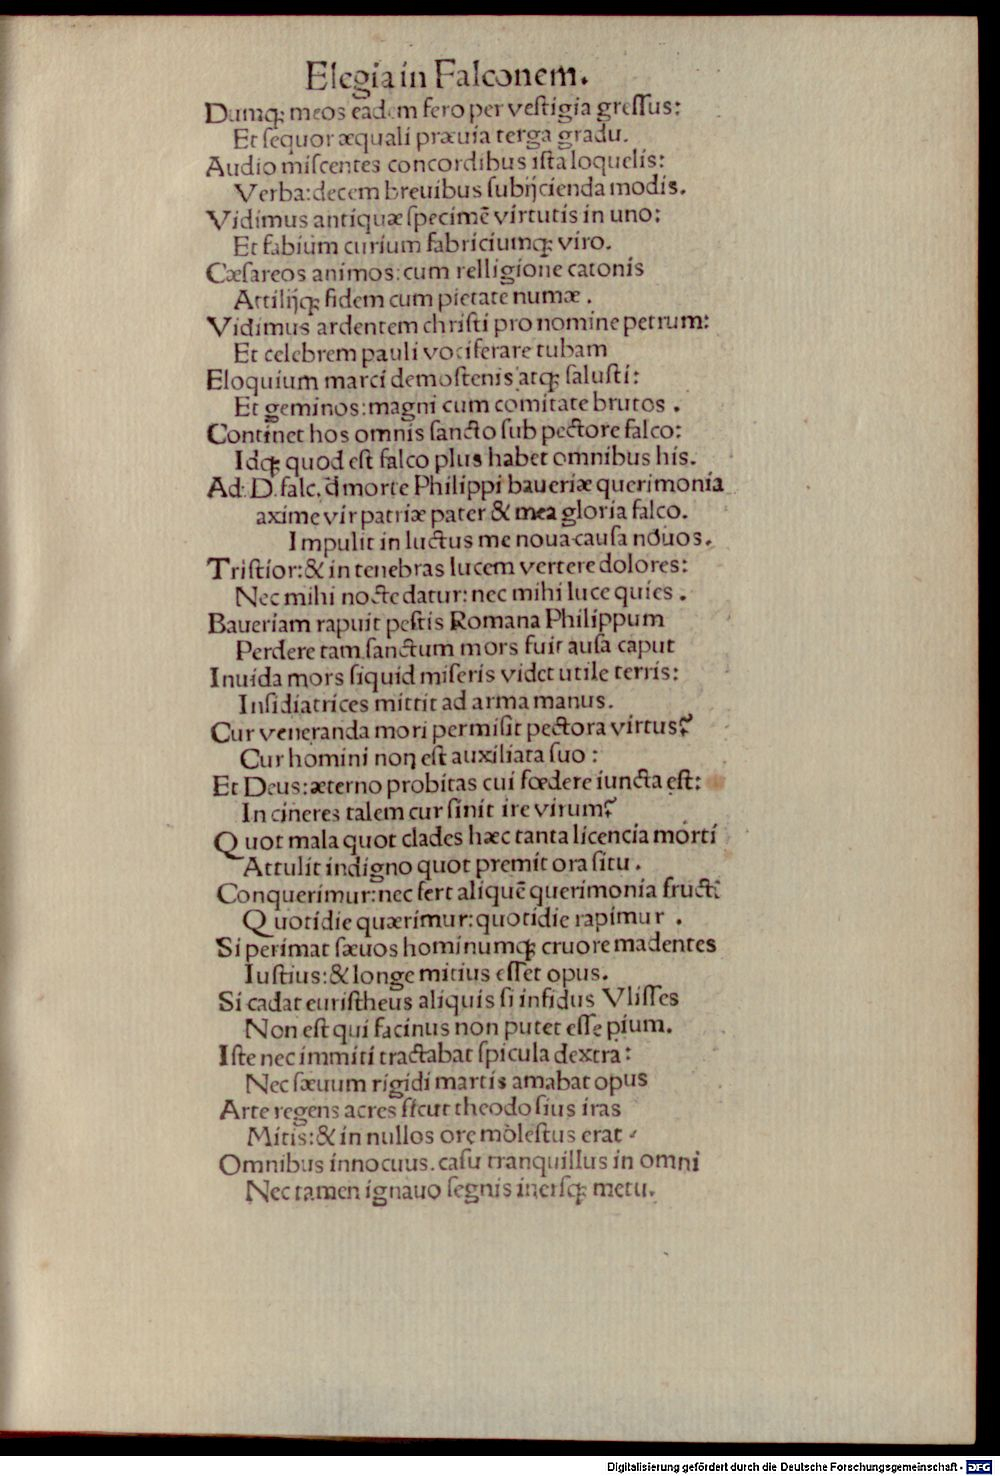 Elegia in Falconem.
Dumqꝫ meos eadem fero per veſtigia greſſus:
Et ſequor æquali præuia terga gradu.
Audio miſcentes concordibus iſta loquelis:
Verba: decem breuibus ſubijcienda modis.
Vidimus antiquæ ſpecimē virtutis in uno:
Et fabium curium fabriciumqꝫ viro.
Cæſareos animos: cum relligione catonis
Attilijqꝫ fidem cum pietate numæ.
Vidimus ardentem chriſti pro nomine petrum:
Et celebrem pauli vociferare tubam
Eloquium marci demoſtenis atqꝫ ſaluſti:
Et geminos: magni cum comitate brutos.
Continet hos omnis ſancto ſub pectore falco:
Idqꝫ quod eſt falco plus habet omnibus his.
Ad. D. falc. d̄ morte Philippi baueriæ querimonia
axime vir patriæ pater & mea gloria falco.
Impulit in luctus me noua cauſa nouos.
Triſtior: & in tenebras lucem vertere dolores:
Nec mihi nocte datur: nec mihi luce quies.
Baueriam rapuit peſtis Romana Philippum
Perdere tam ſanctum mors fuit auſa caput
Inuida mors ſiquid miſeris videt utile terris:
Inſidiatrices mittit ad arma manus.
Cur veneranda mori permiſit pectora virtus?
Cur homini non eſt auxiliata ſuo:
Et Deus: æterno probitas cui fœdere iuncta eſt:
In cineres talem cur ſinit ire virum?
Quot mala quot clades hæc tanta licencia morti
Attulit indigno quot premit ora ſitu.
Conquerimur: nec fert aliquē querimonia fructū
Quotidie quærimur: quotidie rapimur.
Si perimat ſæuos hominumqꝫ cruore madentes
Iuſtius: & longe mitius eſſet opus.
Si cadat euriſtheus aliquis ſi infidus Vliſſes
Non eſt qui facinus non putet eſſe pium.
Iſte nec immiti tractabat ſpicula dextra:
Nec ſæuum rigidi martis amabat opus
Arte regens acres ſicut theodoſius iras
Mitis: & in nullos ore moleſtus erat
Omnibus innocuus. caſu tranquillus in omni
Nec tamen ignauo ſegnis inerſqꝫ metu.
Digitalisierung gefördert durch die Deutsche Forschungsgemeinschaft - DFG